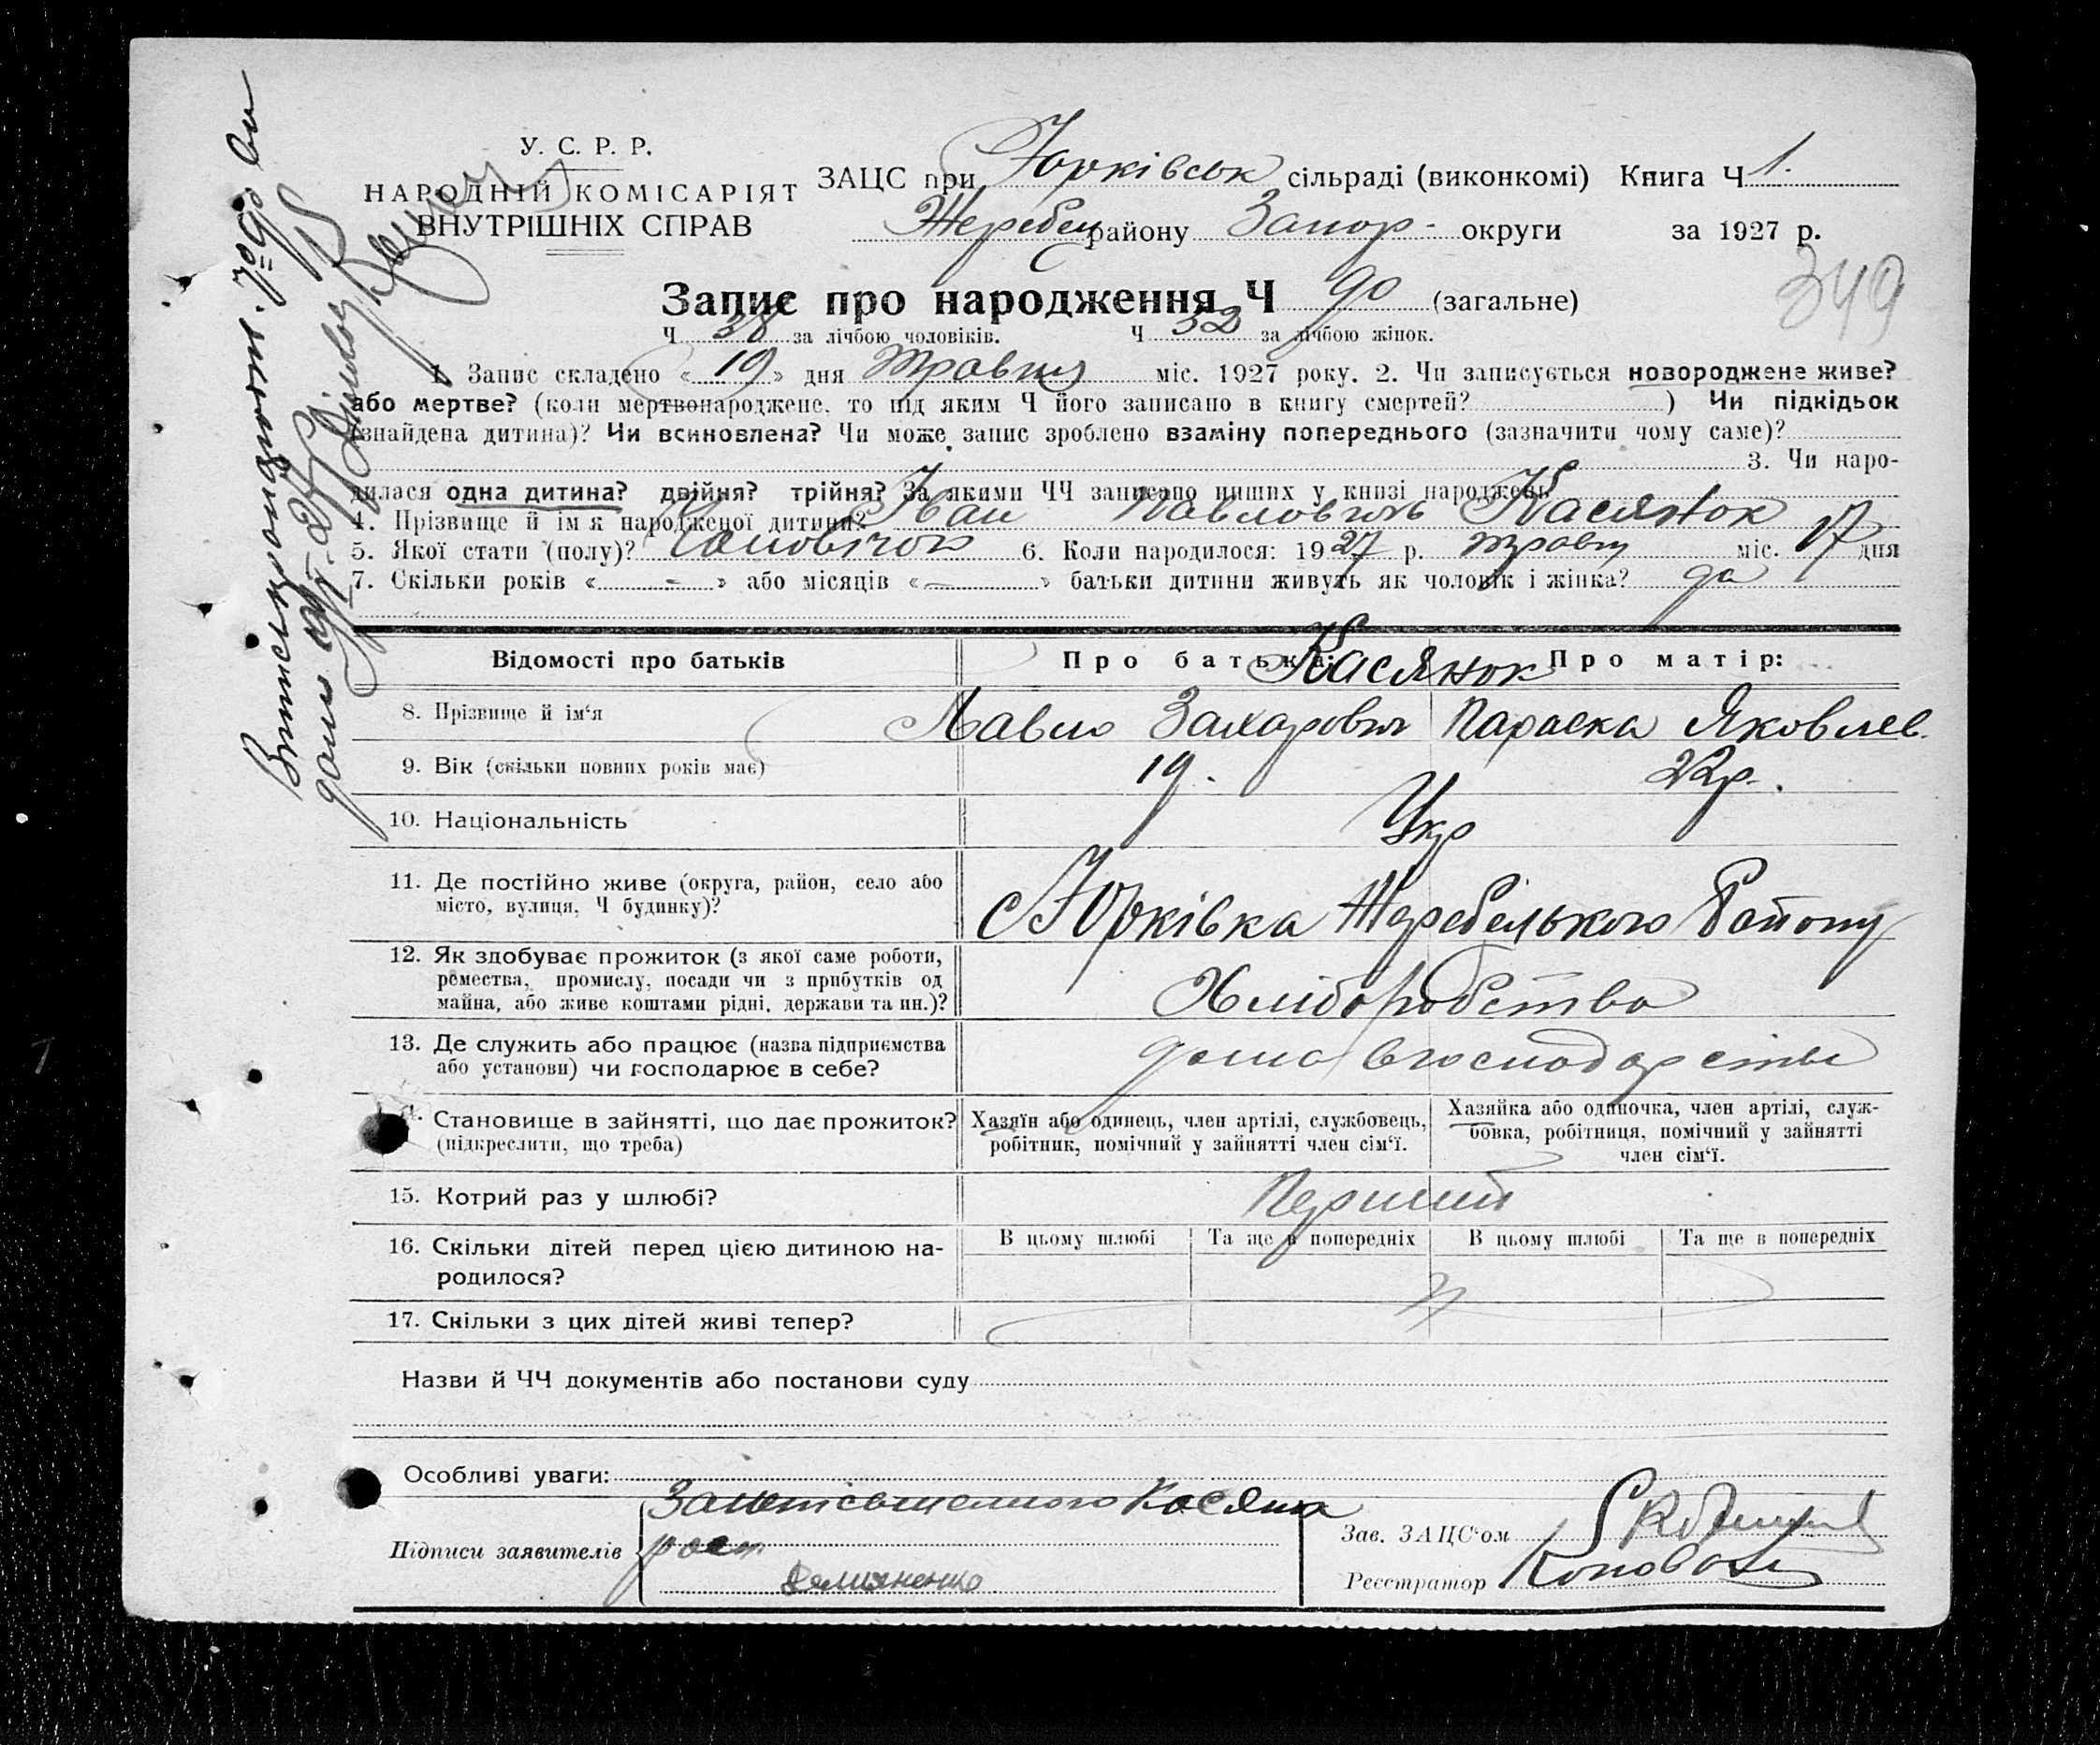 У. С. Р. Р.
НАРОДНІЙ КОМІСАРІЯТ
ВНУТРІШНІХ СПРАВ
ЗАЦС при Юрківськ сільраді (виконкомі) Книга Ч 1.
Жеребец району Запор- округи за 1927 р.
349
Запис про народження Ч 90 (загальне)
Ч 38 за лічбою чоловіків. Ч 52 за лічбою жінок.
1. Запис складено « 19 » дня травня міс. 1927 року. 2. Чи записується новороджене живе?
або мертве? (коли мертвонароджене, то під яким Ч його записано в книгу смертей? ) Чи підкідьок
(знайдена дитина)? Чи всиновлена? Чи може запис зроблено взаміну попереднього (зазначити чому саме)?
3. Чи наро-
дилася одна дитина? двійня? трійня? За якими ЧЧ записано инших у книзі народжень
4. Прізвище й ім'я народженої дитини? Іван Павлович Касянок
5. Якої стати (полу)? Чоловічої 6. Коли народилося: 1927 р. травня міс. 17 дня
7. Скільки років « - » або місяців « — » батьки дитини живуть як чоловік і жінка? да
Відомості про батьків Про батька: Касянок Про матір:
8. Прізвище й ім'я Павло Захарович Параска Яковлев.
9. Вік (скільки повних років має) 19. 22р.
10. Національність Укр
11. Де постійно живе (округа, район, село або
місто, вулиця, Ч будинку)?
с Юрківка Жеребецького Району
12. Як здобуває прожиток (з якої саме роботи,
ремества, промислу, посади чи з прибутків од
майна, або живе коштами рідні, держави та ин.)?
Хліборобство
13. Де служить або працює (назва підприємства
або установи) чи господарює в себе?
дома в господарстві
14. Становище в зайнятті, що дає прожиток?
(підкреслити, що треба)
Хазяїн або одинець, член артілі, службовець,
робітник, помічний у зайнятті член сім'ї.
Хазяйка або одиночка, член артілі, служ-
бовка, робітниця, помічний у зайнятті
член сім'ї.
15. Котрий раз у шлюбі? Перший
16. Скільки дітей перед цією дитиною на-
родилося?
В цьому шлюбі Та ще в попередніх В цьому шлюбі Та ще в попередніх
17. Скільки з цих дітей живі тепер?
Назви й ЧЧ документів або постанови суду
Особливі уваги:
Підписи заявителів
Касяна
рос
Демяненко
Зав. ЗАЦС'ом
Реєстратор Коновал